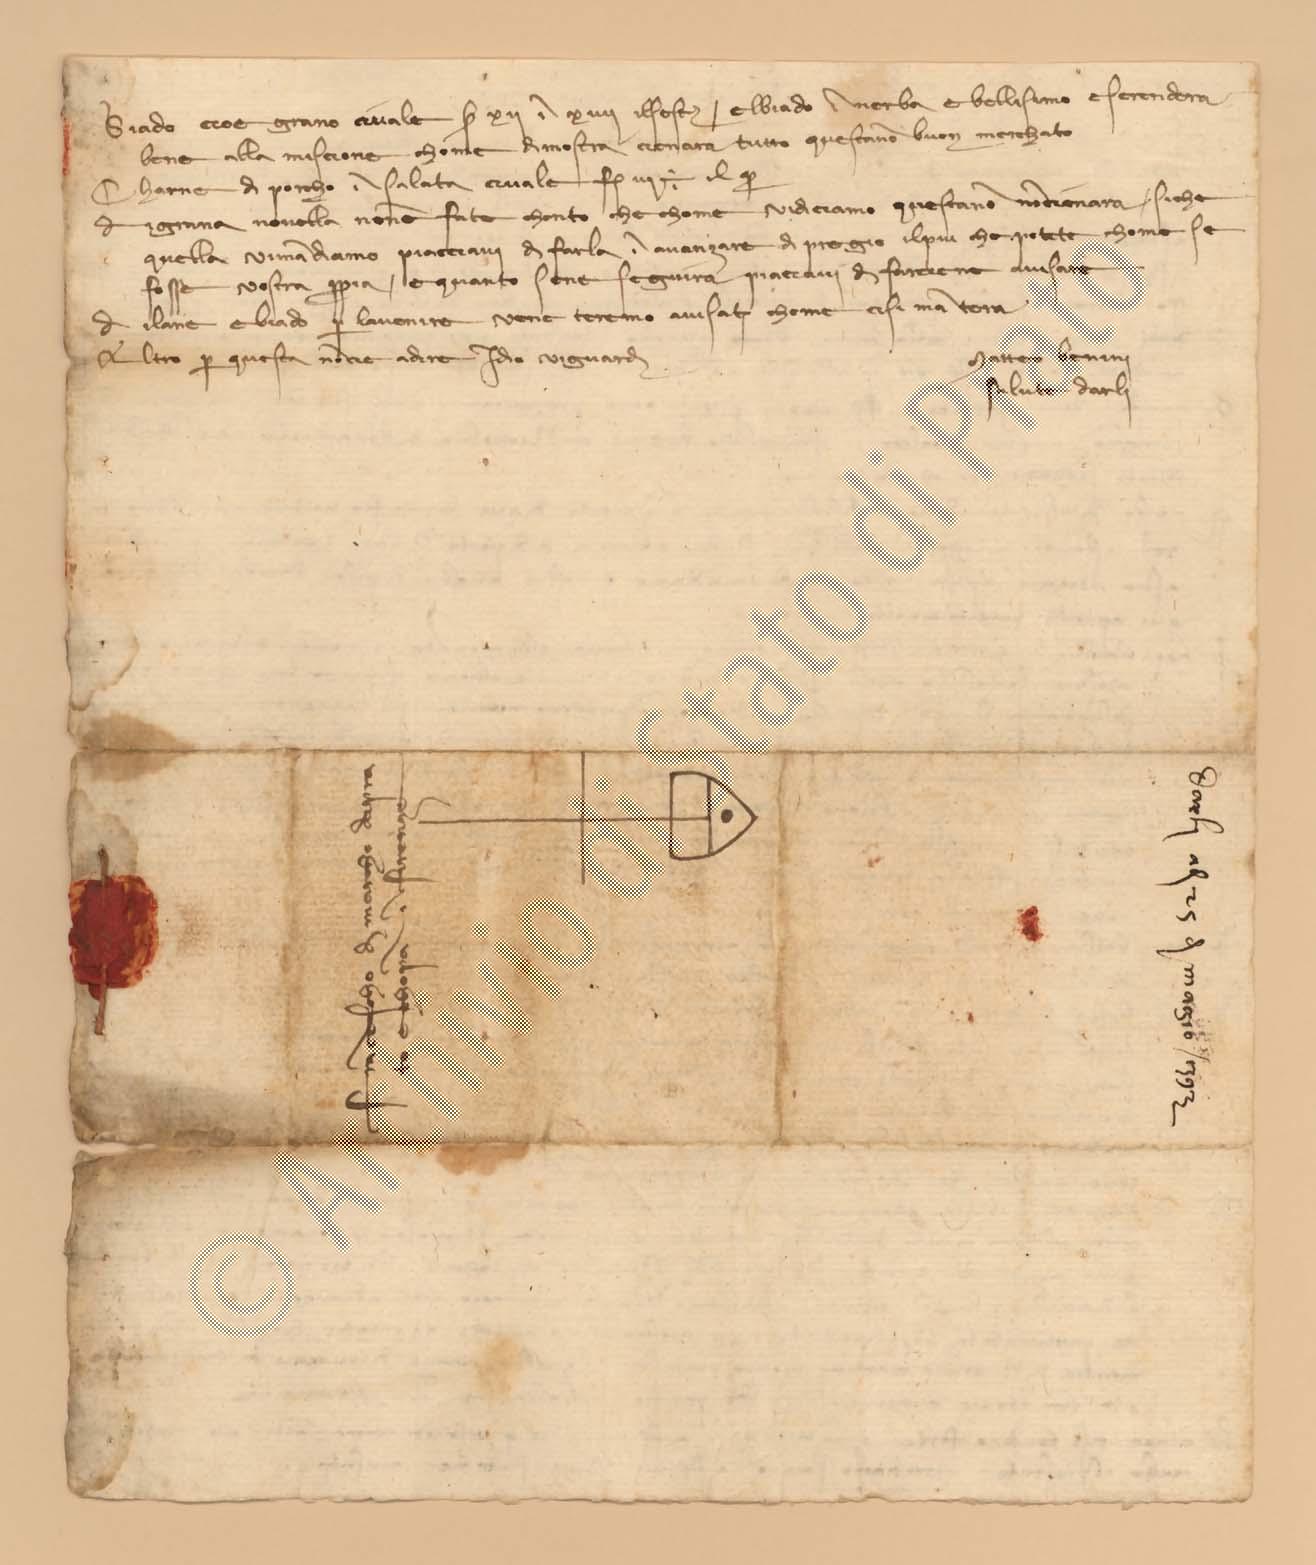 Biado cioe grano civale s xii i xviii il sest / e lbiado i nerba e bellisimo e serendera
bene alla miscione chome dimostra cienara tutto questano buon merchato
Charne di porcho i salata civale s vi il
di grana novella none fate chonto che chome vidiciamo questano nocienara / siche
quella vimandiamo piacciavi di farla i avanzare di pregio ilpiu che potete chome se
fosse vostra propia / e quanto sene seguira piacciavi di farciene avisare
di lane e biado p lavenire vene teremo avisati chome cisi mantera
Altro p questa nocie adire Idio viguardi
Matteo benini
salute darli
Franciescho di marcho da prato
e chopa i firenze
Darli a di 25 di magio / 1393
© Archivio di Stato di Prato